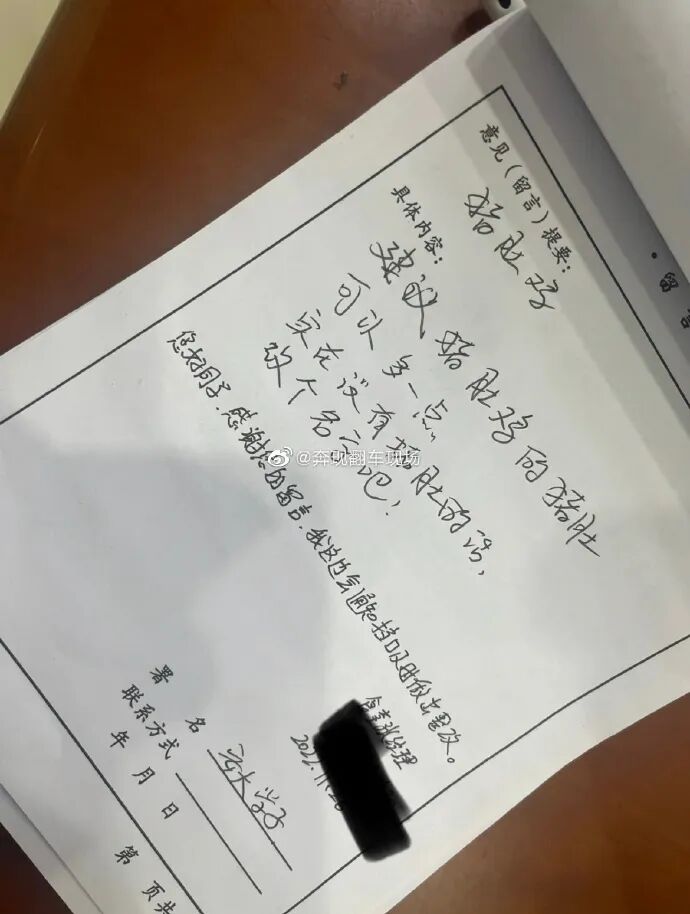 留言
意见(留言)提要:
猪肚鸡
具体内容:
建议猪肚鸡的猪肚
可以多一点
实在没有猪肚的话,
改个名字吧!
您好同学,感谢您的留言,我这边会通知档口及时做出整改。
经理
2022.11.28
@奔现翻车现场
署名
大学子
联系方式
年 月 日
第 页共